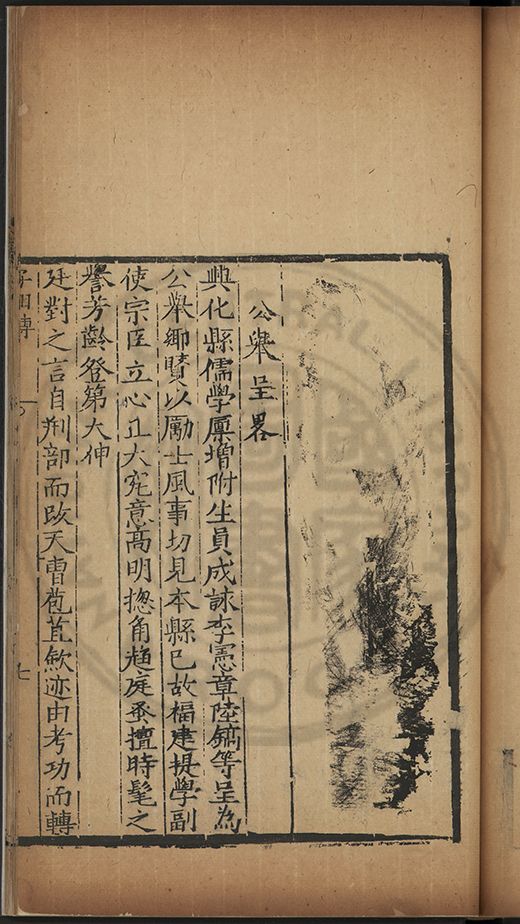 公舉呈畧
興化縣儒學廩增附生員成諫李憲章陸鎬等呈為
公舉鄉賢以勵士風事切見本縣已故福建提學副
使宗臣立心正大宄意高明揔角趍庭蚤擅時髦之
譽芳齡登第大伸
廷對之言自刑部而改天曹苞苴歛迹由考功而轉
七